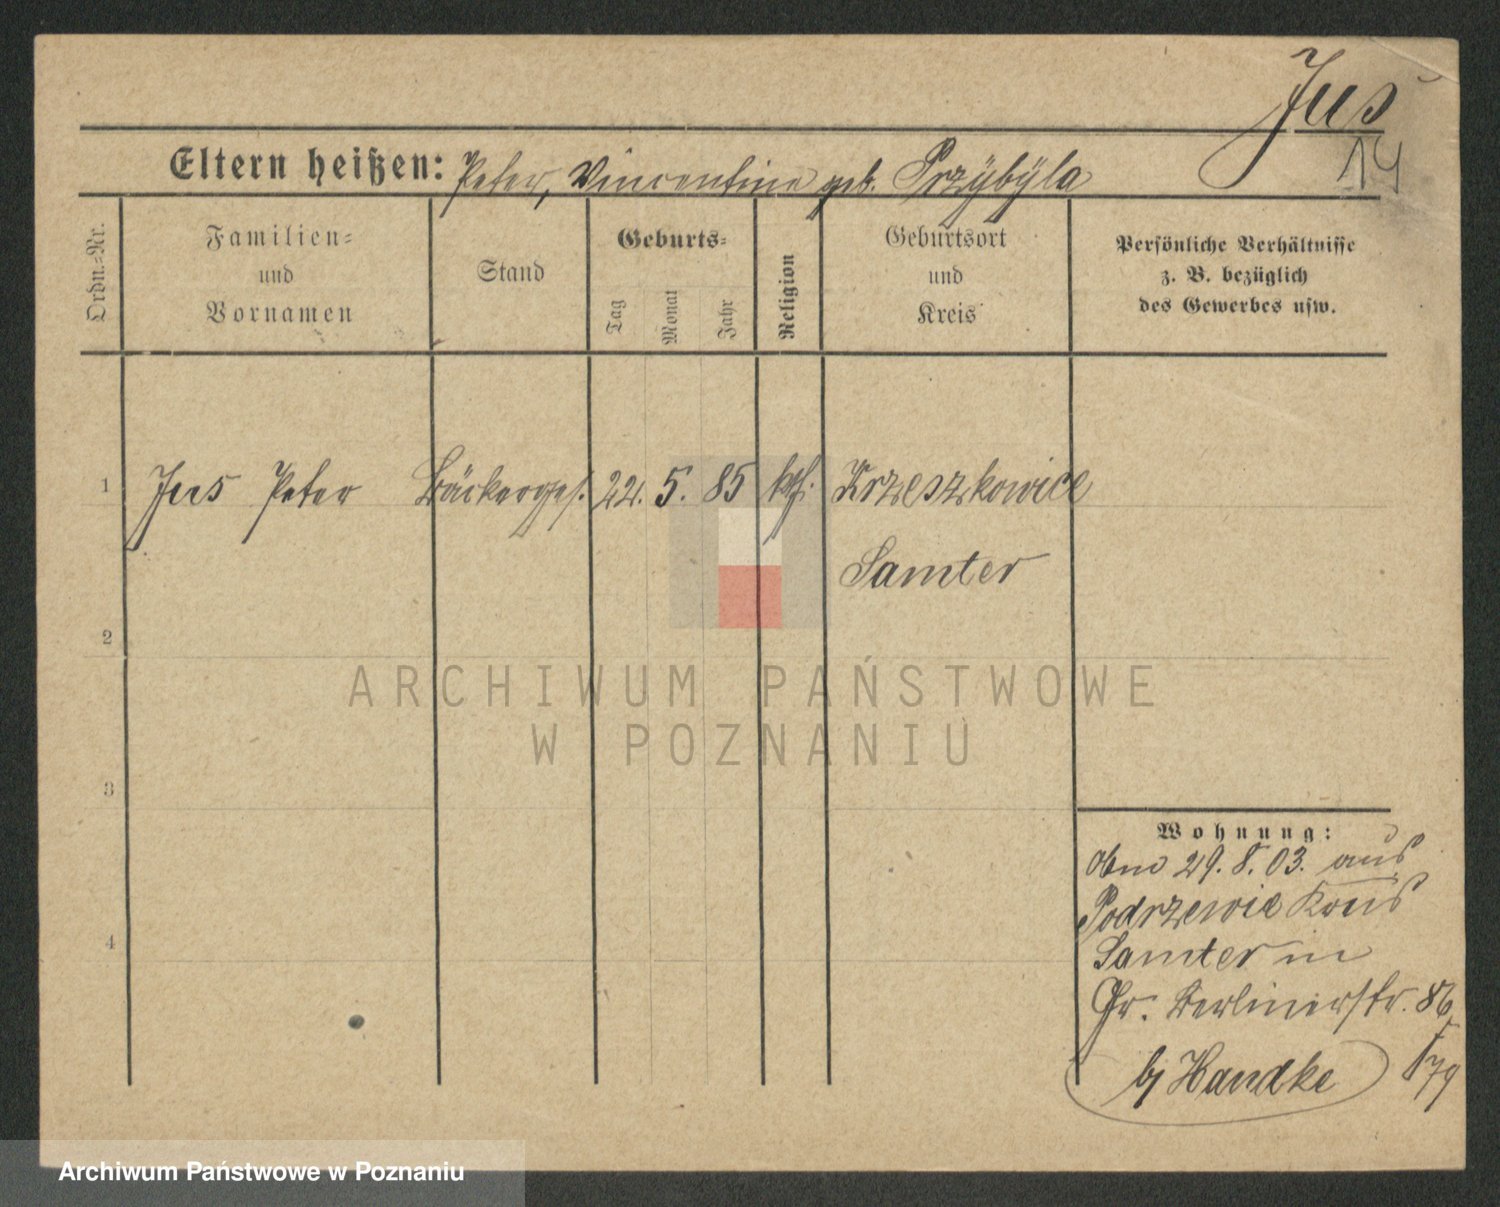 Jus
14
Eltern heißen: Peter, Vincentine geb. Przÿbÿla
Ordn.-Nr.
Familien-
und
Vornamen
Stand
Geburts-
Tag
Monat
Jahr
Religion
Geburtsort
und
Kreis
Persönliche Verhältnisse
z. B. bezüglich
des Gewerbes usw.
1 Jus Peter Bäckerges. 22. 5. 85 kth. Krzeszkowice
Samter
2
ARCHIWUM PAŃSTWOWE
W POZNANIU
3
Wohnung:
29. 8. 03. aus
Podrzewie Kreis
4
Samter in
Gr. Berlinerstr. 86
b/ Handke
79
Archiwum Państwowe w Poznaniu